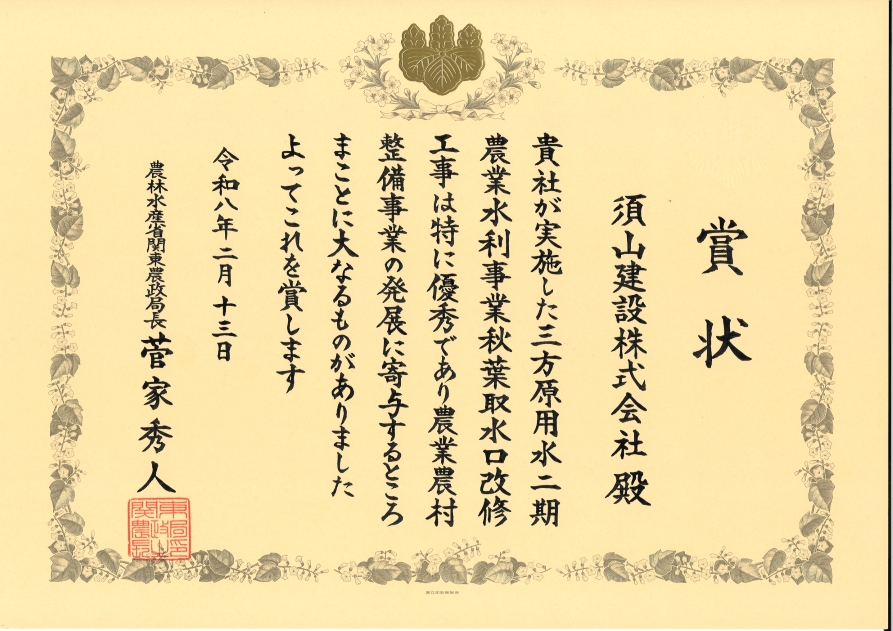 賞状
須山建設株式会社殿
貴社が実施した三方原用水二期
農業水利事業秋葉取水口改修
工事は特に優秀であり農業農村
整備事業の発展に寄与するところ
まことに大なるものがありました
よってこれを賞します
令和八年二月十三日
農林水産省関東農政局長 菅家秀人